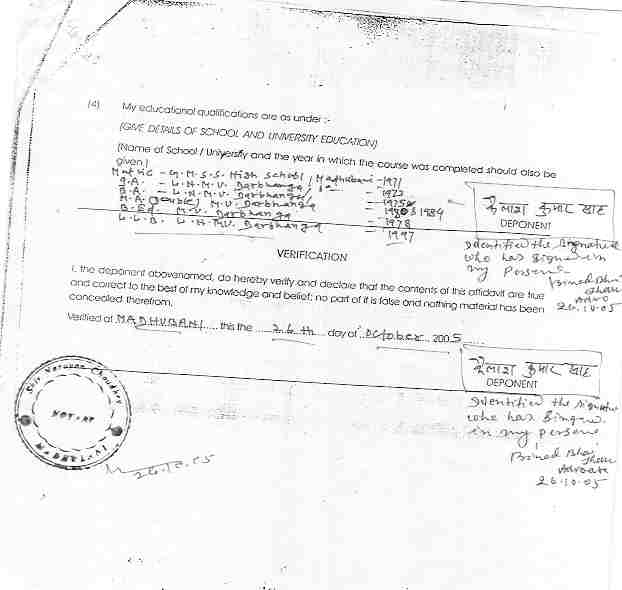 (4) My educational qualifications are as under :-
(GIVE DETAILS OF SCHOOL AND UNIVERSITY EDUCATION)
(Name of School / University and the year in which the course was completed should also be
given)
Matric - G.M.S.S. High School, Madhubani - 1971
I.A. - L.N.M.V. Darbhanga - 1973
B.A. - L.N.M.V. Darbhanga - 1975
M.A. (Double) M.U. Darbhanga - 1984
B.Ed. M.V. Darbhanga - 1978
L.L.B. L.N.M.V. Darbhanga = 1997
कैलाश कुमार साह
DEPONENT
Identified the signature
who has signed in
my persence
26.10.05
VERIFICATION
I, the deponent abovenamed, do hereby verify and declare that the contents of this affidavit are true
and correct to the best of my knowledge and belief; no part of it is false and nothing material has been
concealed therefrom.
Verified at MADHUBANI this the 26th day of October 2005
कैलाश कुमार साह
DEPONENT
Identified the signature
who has
in my persence
Advocate
26.10.05
Shiv Narayan Choudhary
NOTARY
26.10.05